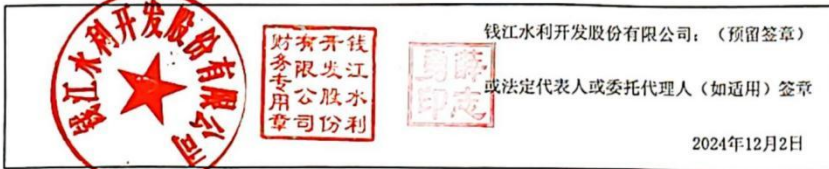 钱江水利开发股份有限公司
钱江水利
开发股份
有限公司
财务专用章
薛志
勇印
钱江水利开发股份有限公司：（预留签章）
或法定代表人或委托代理人（如适用）签章
2024年12月2日